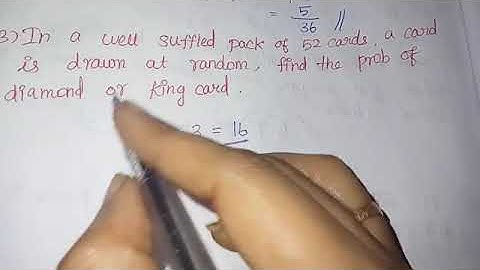 = 5/36 //
3) In a well suffled pack of 52 cards, a card
is drawn at random, find the prob of
diamond or King card.
3 = 16